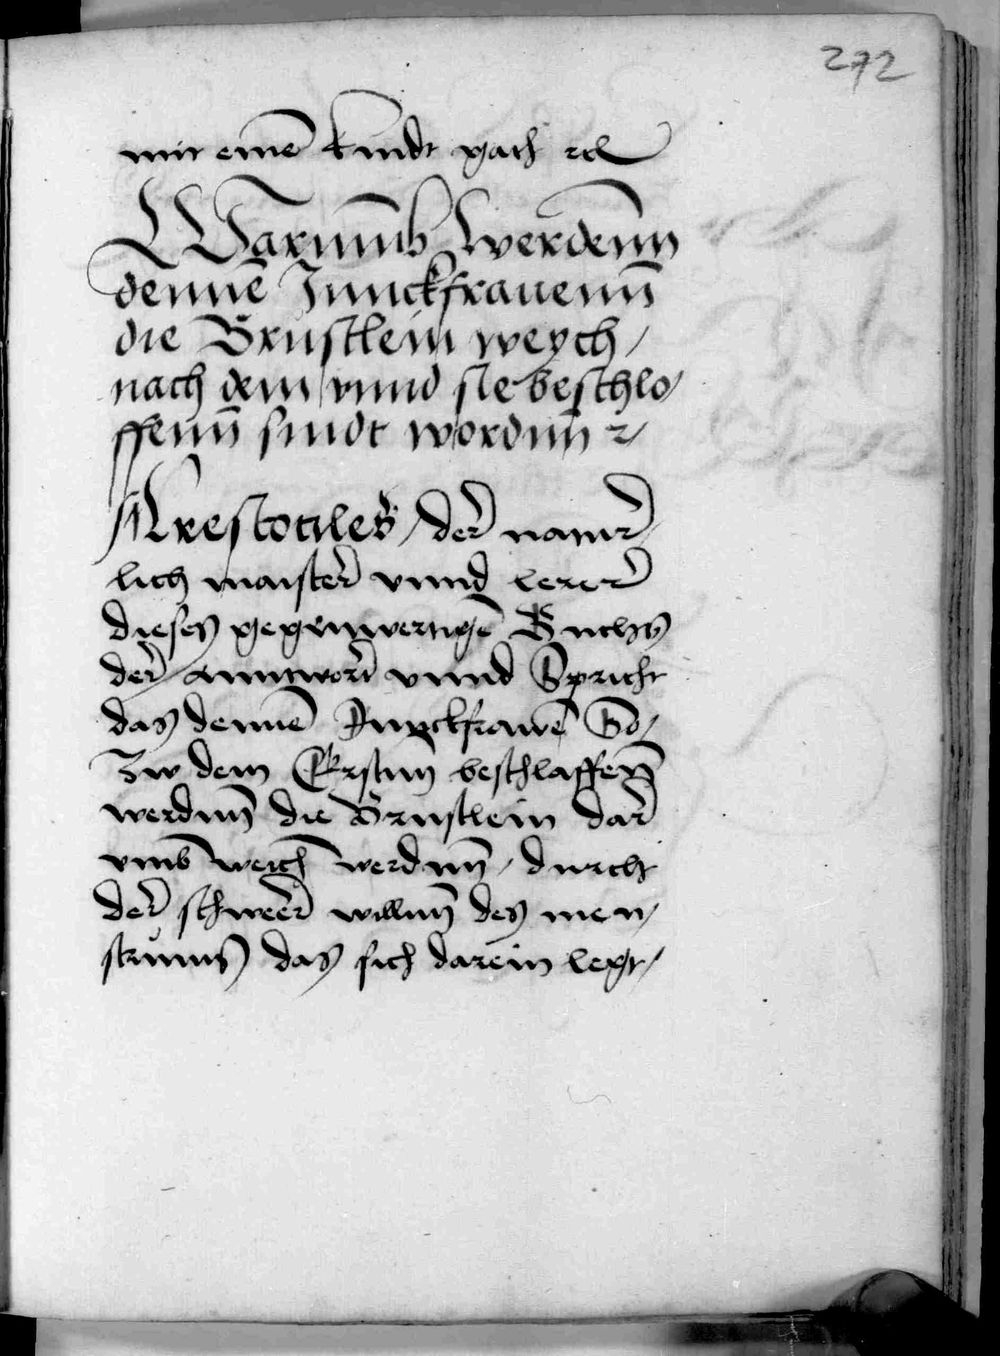 272
mit eine͂ kindt gath ꝛc
Warumb werdenn
denne͂ Junckfrauenn
die Brustlein weych /
nach dem vnnd sie beschlo/
ffenn sindt wordnn ꝛ/
Arestotiles / der natur/
lich maister vnnd lerer
dieses gegenwertige͂ Buchs
der anntwort vnnd Spricht
das denne͂ Junckfrawe͂ So/
Zw dem Erstnn beschlaffenn
werdnn die Brustlein dar
vmb weich werdnn / durch
der schwer willnn des men/
struums das sich darein legt /